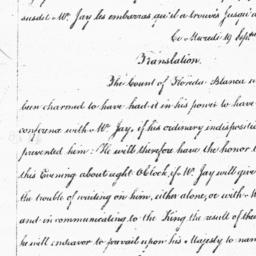 susdit Mr. Jay les embarras, qu'il a trouvés jusqu'a
Ce Mercredi 19 Septre
Translation.
The Count of Florida Blanca w
been charmed to have had it in his power to have
conferred with Mr. Jay, if his ordinary indispositi
prevented him. He will therefore have the honor t
this Evening about eight OClock, if Mr. Jay will give
the trouble of writing on him, either alone, or with M
and in communicating to the King the result of thei
he will endeavor to prevail upon his Majesty to nam